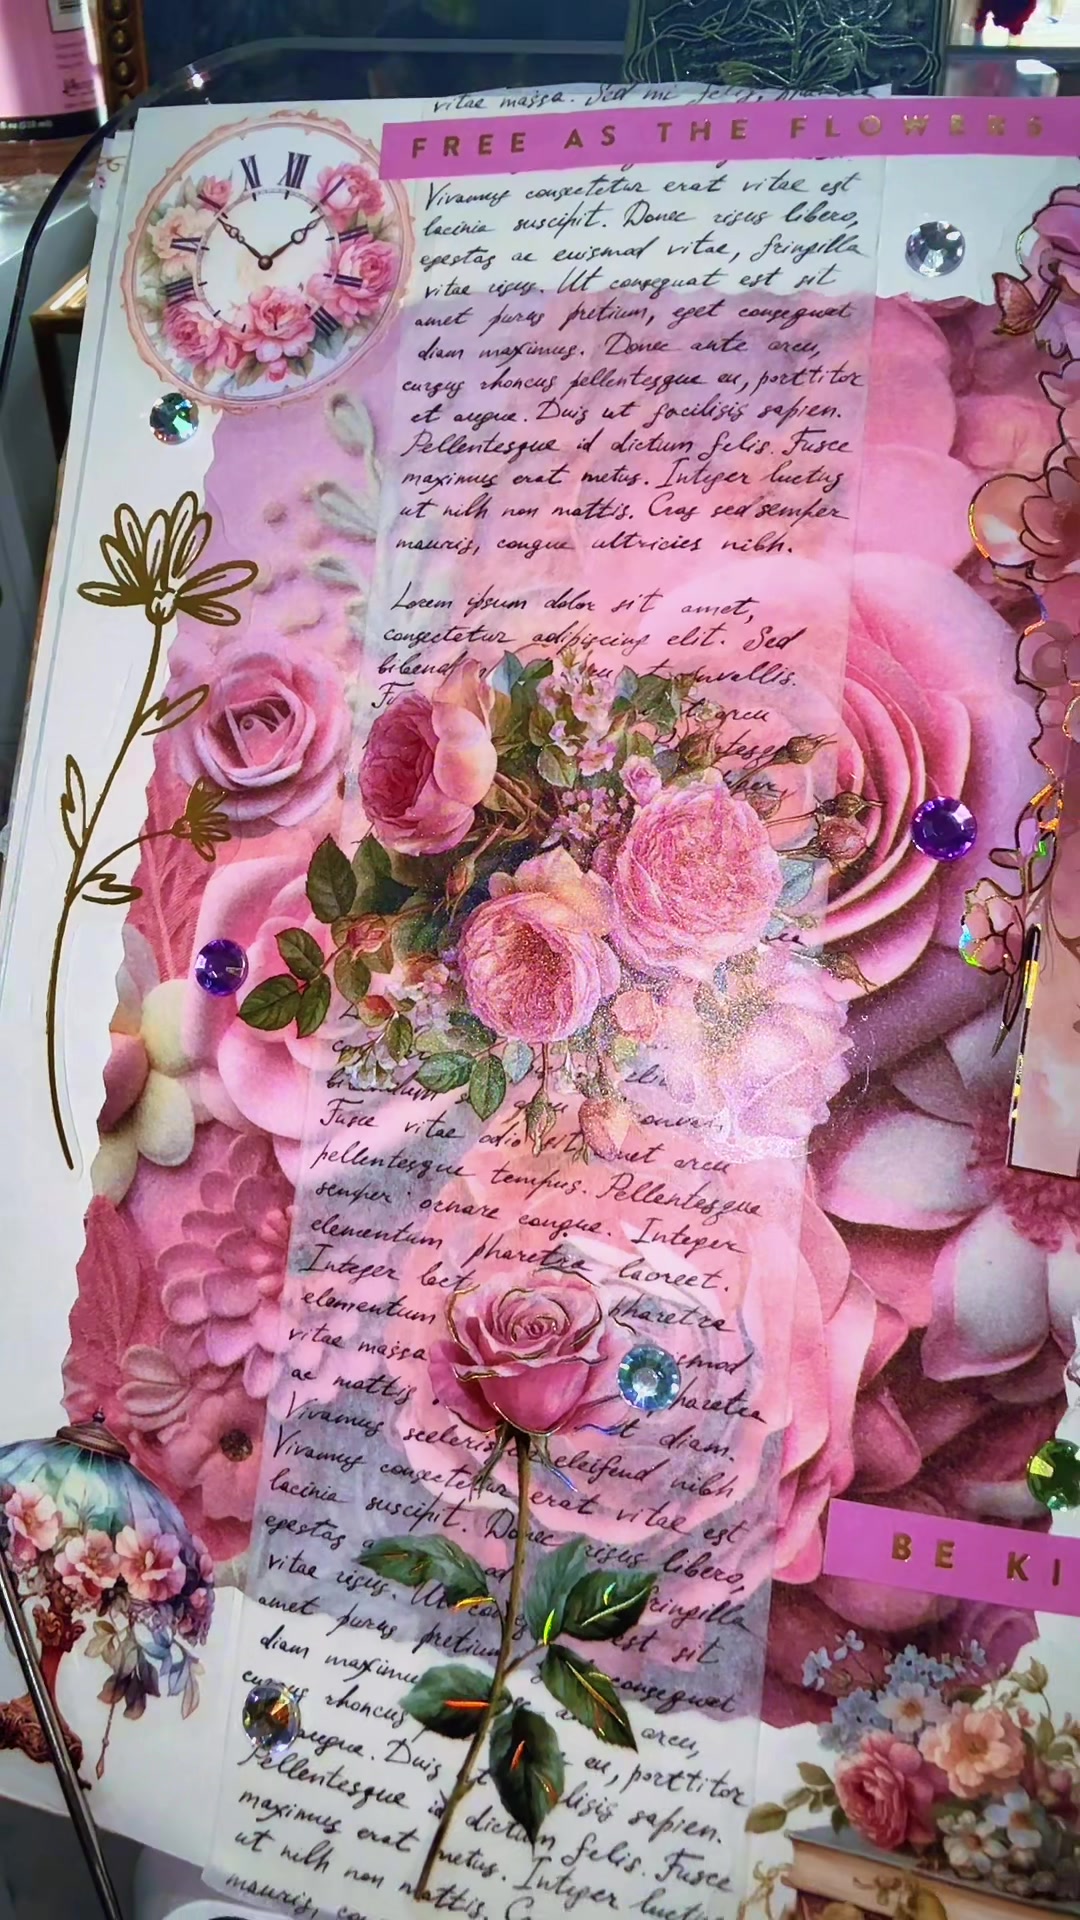 vitae massa. Sed mi felis,
FREE AS THE FLOWERS
Vivamus consectetur erat vitae est
lacinia suscipit. Donec risus libero,
egestas ac euismod vitae, fringilla
vitae risus. Ut consequat est sit
amet purus pretium, eget consequat
diam maximus. Donec ante arcu,
cursus rhoncus pellentesque eu, porttitor
et augue. Duis ut facilisis sapien.
Pellentesque id dictum felis. Fusce
maximus erat metus. Integer luctus
ut nibh non mattis. Cras sed semper
mauris, congue ultricies nibh.
Lorem ipsum dolor sit amet,
consectetur adipiscing elit. Sed
bibend convallis.
Fu t arcu
Fusce vitae odio sit amet arcu
pellentesque tempus. Pellentesque
semper ornare congue. Integer
elementum pharetra laoreet.
Integer lact
elementum pharetra
vitae massa ismod
ac mattis pharetra
t diam.
Vivamus scelerisque eleifend nibh
Vivamus consectetur erat vitae est
lacinia suscipit. Donec risus libero,
egestas a fringilla
vitae risus. Ut con est sit
amet purus pretium consequat
diam maximu arcu,
rhoncus eu, porttitor
augue. Duis ut ilisis sapien.
Pellentesque id dictum felis. Fusce
maximus erat metus. Integer luctus
ut nibh non mattis.
mauris,
BE KI